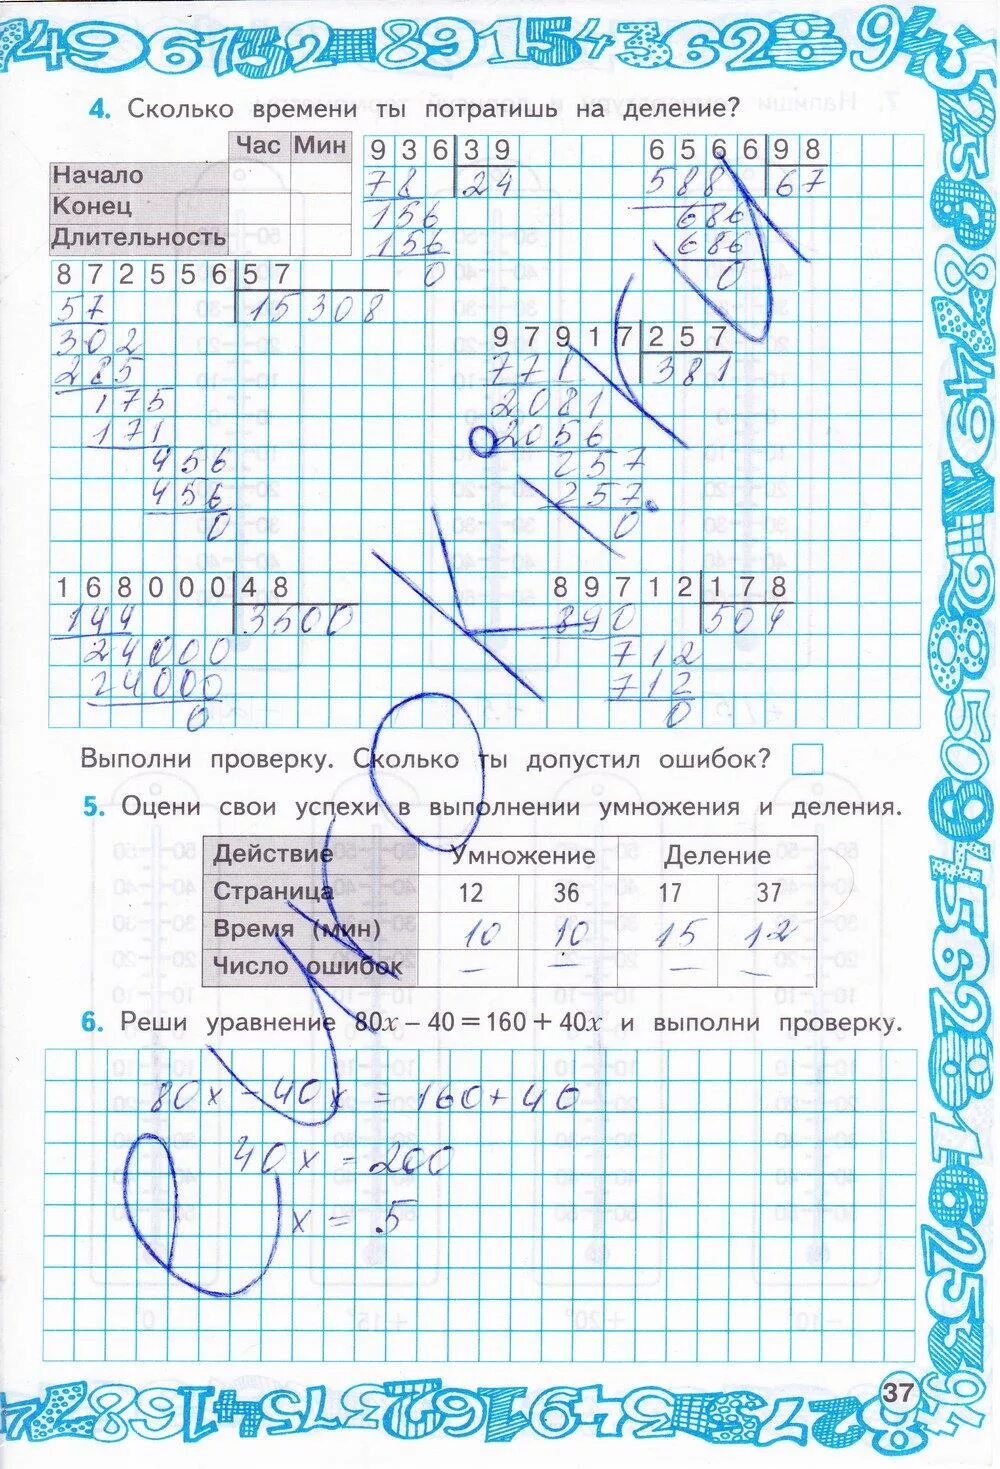 4. Сколько времени ты потратишь на деление?
Час Мин
Начало
Конец
Длительность
936 39
78 24
156
156
0
6566 98
588 67
686
686
0
872556 57
57 15308
302
285
175
171
456
456
0
97917 257
771 381
2081
2056
257
257
0
168000 48
144 3500
24000
24000
0
89712 178
890 504
712
712
0
Выполни проверку. Сколько ты допустил ошибок?
5. Оцени свои успехи в выполнении умножения и деления.
Действие Умножение Деление
Страница 12 36 17 37
Время (мин) 10 10 15 12
Число ошибок – – – –
6. Реши уравнение 80x – 40 = 160 + 40x и выполни проверку.
80x – 40x = 160 + 40
40x = 200
x = 5
37